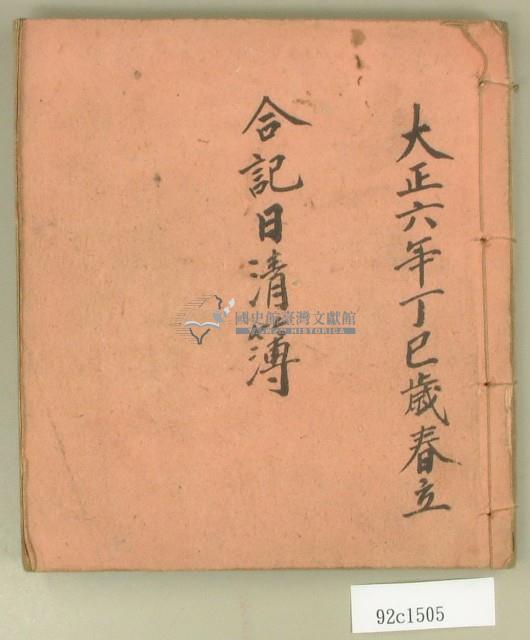 大正六年丁巳歲春立
合記日清簿
國史館臺灣文獻館
TAIWAN HISTORICA
92c1505